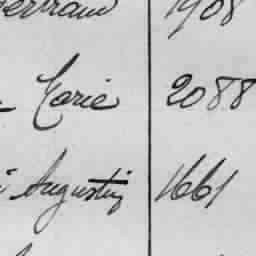 Bertrand 1908
Marie 2088
Augustin 1661